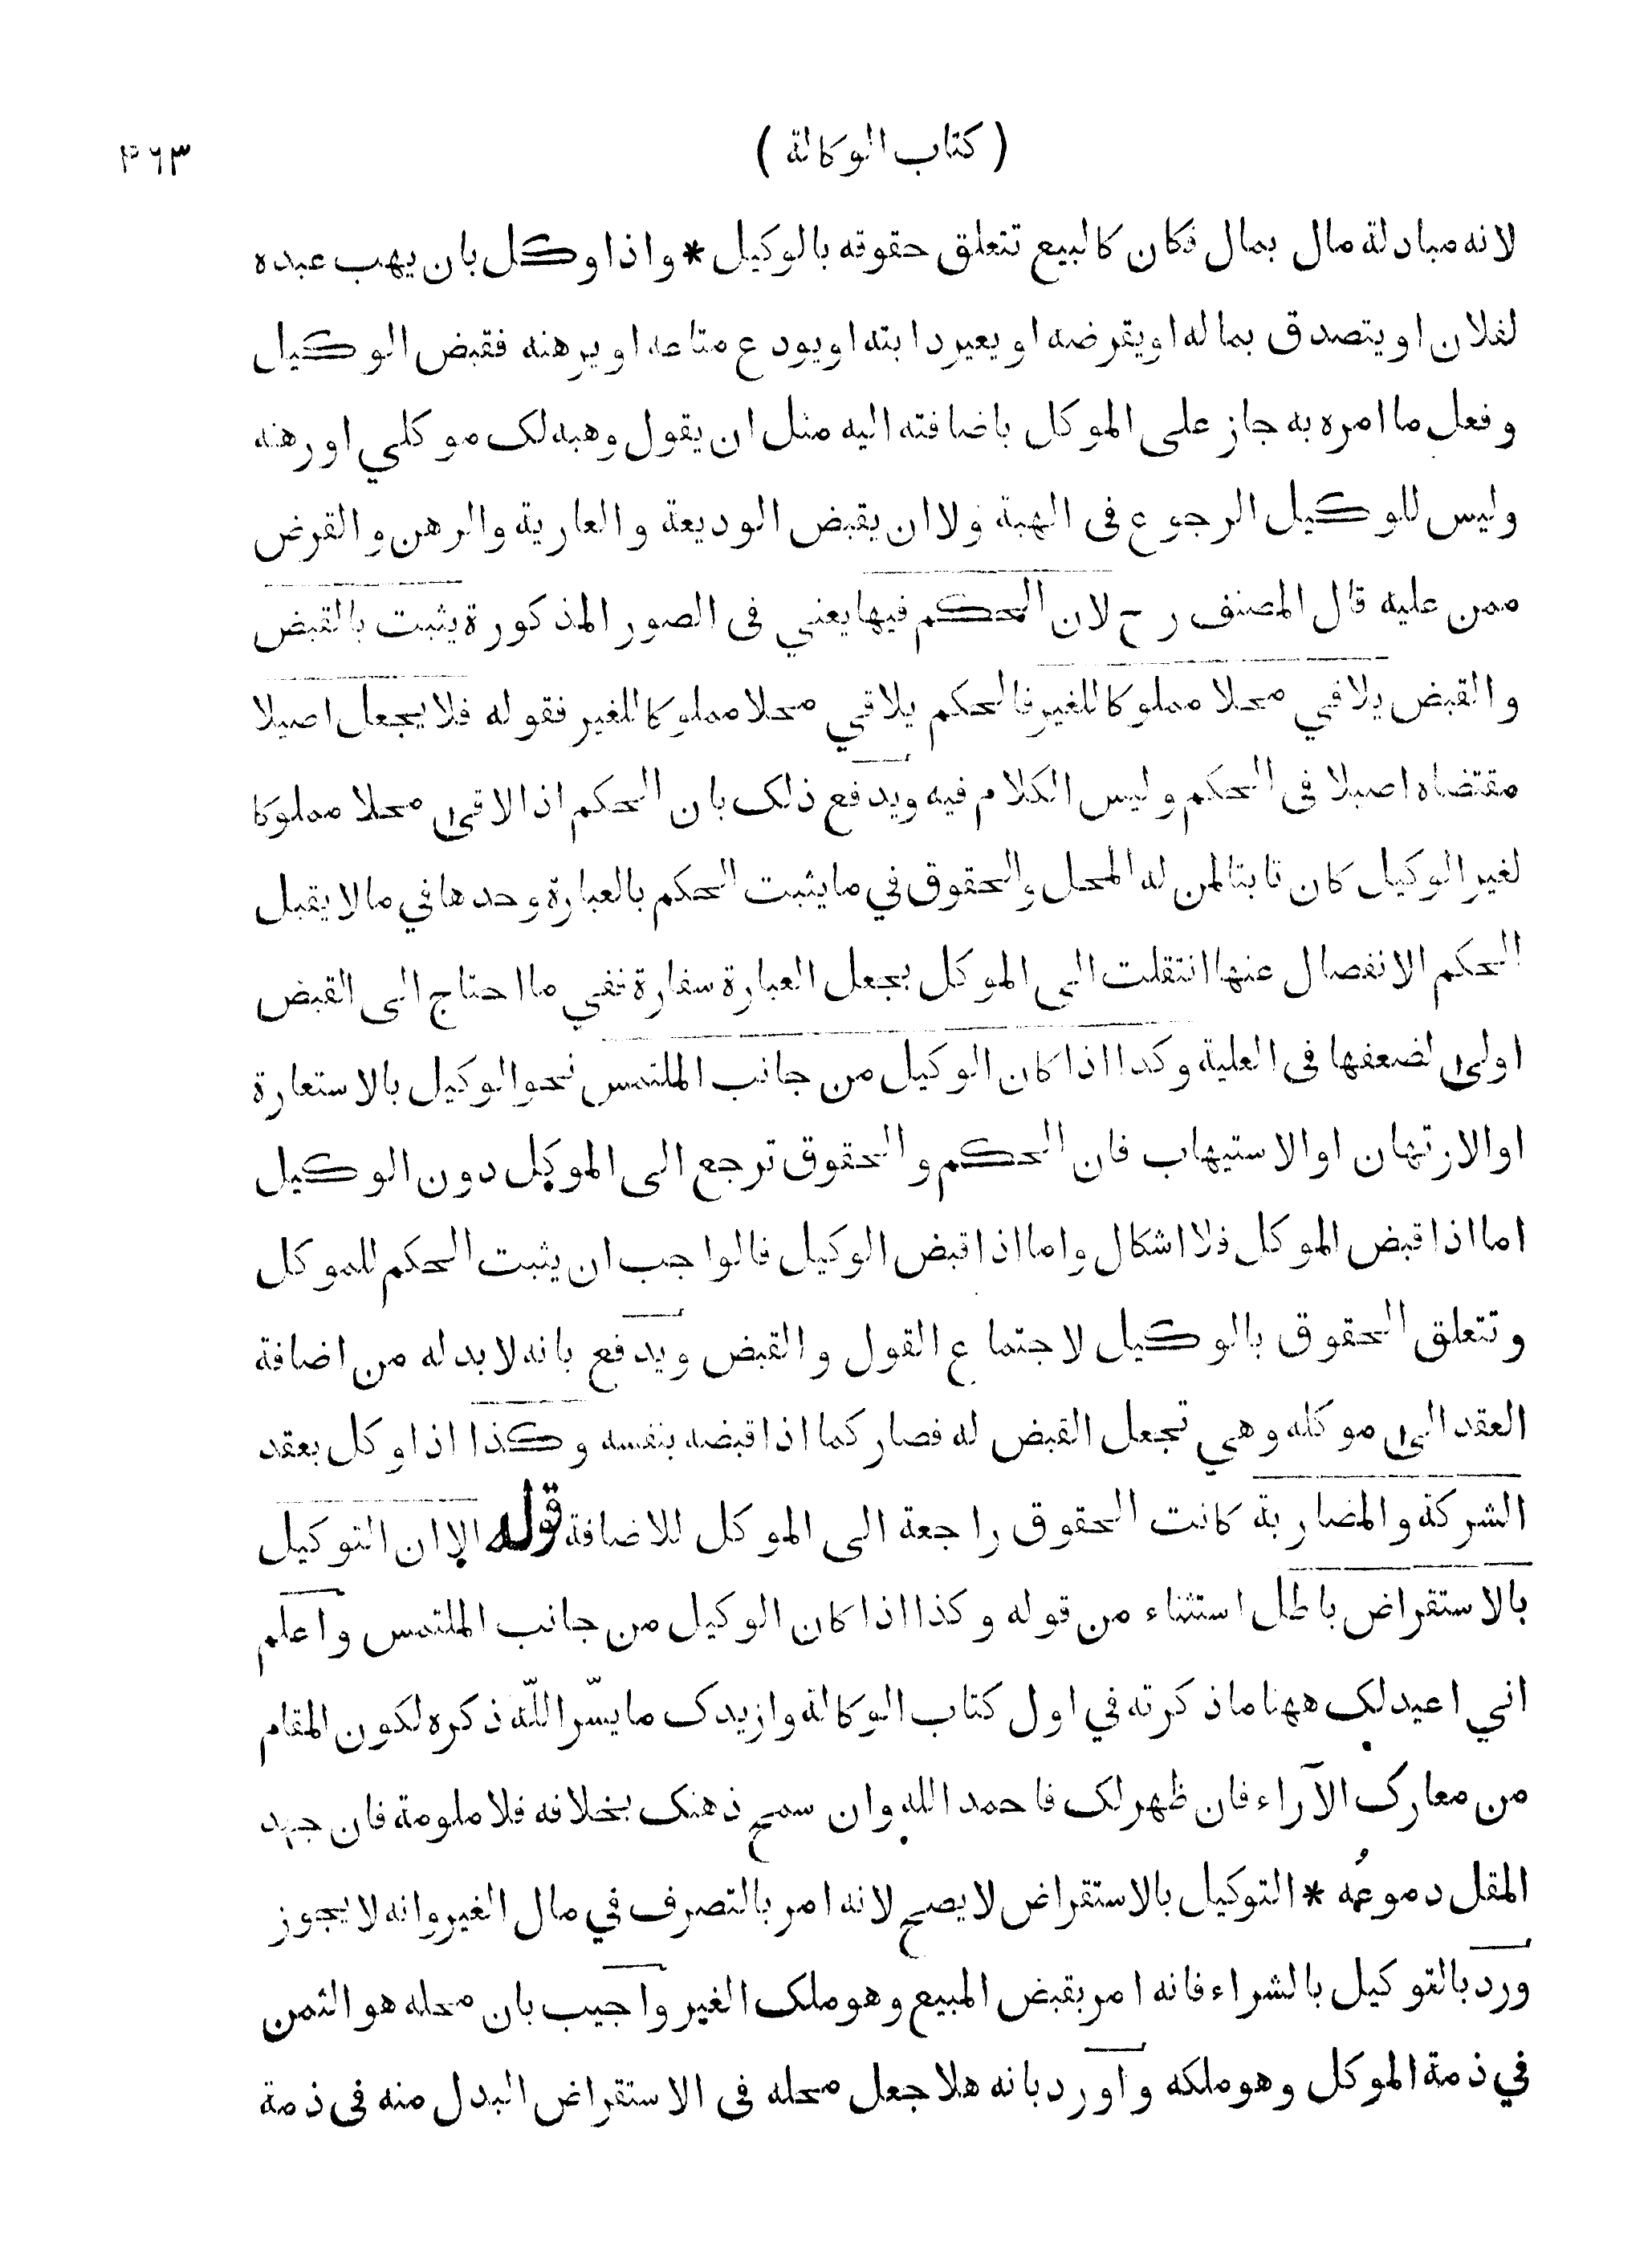 ( كتاب الوكالة )
۴٦٣
لانه مبادلة مال بمال فكان كالبيع تتعلق حقوقه بالوكيل * واذا وكل بان يهب عبده
لفلان او يتصدق بماله او يقرضه او يعير دابته او يودع متاعه او يرهنه فقبض الوكيل
وفعل ما امره به جاز على الموكل باضافته اليه مثل ان يقول وهبه لك موكلي او رهنه
وليس للوكيل الرجوع في الهبة ولا ان يقبض الوديعة والعارية والرهن والقرض
ممن عليه قال المصنف رح لان الحكم فيها يعني في الصور المذكورة يثبت بالقبض
والقبض يلاقي محلا مملوكا للغير فالحكم يلاقي محلا مملوكا للغير فقوله فلا يجعل اصيلا
مقتضاه اصيلا في الحكم وليس الكلام فيه ويدفع ذلك بان الحكم اذا لاقى محلا مملوكا
لغير الوكيل كان ثابتا لمن له المحل والحقوق في ما يثبت الحكم بالعبارة وحدها في ما لا يقبل
الحكم الانفصال عنها انتقلت الى الموكل بجعل العبارة سفارة ففي ما احتاج الى القبض
اولى لضعفها في العلية وكذا اذا كان الوكيل من جانب الملتمس نحو الوكيل بالاستعارة
او الارتهان او الاستيهاب فان الحكم والحقوق ترجع الى الموكل دون الوكيل
اما اذا قبض الموكل فلا اشكال واما اذا قبض الوكيل فالواجب ان يثبت الحكم للموكل
وتتعلق الحقوق بالوكيل لاجتماع القول والقبض ويدفع بانه لا بد له من اضافة
العقد الى موكله وهي تجعل القبض له فصار كما اذا قبضه بنفسه وكذا اذا وكل بعقد
الشركة والمضاربة كانت الحقوق راجعة الى الموكل للاضافة قوله الا ان التوكيل
بالاستقراض باطل استثناء من قوله وكذا اذا كان الوكيل من جانب الملتمس واعلم
اني اعيد لك ههنا ما ذكرته في اول كتاب الوكالة وازيدك ما يسّر اللّه ذكره لكون المقام
من معارك الآراء فان ظهر لك فاحمد الله وان سمح ذهنك بخلافه فلا ملومة فان جهد
المقل دموعُه * التوكيل بالاستقراض لا يصح لانه امر بالتصرف في مال الغير وانه لا يجوز
ورد بالتوكيل بالشراء فانه امر بقبض المبيع وهو ملك الغير واجيب بان محله هو الثمن
في ذمة الموكل وهو ملكه واورد بانه هلا جعل محله في الاستقراض البدل منه في ذمة